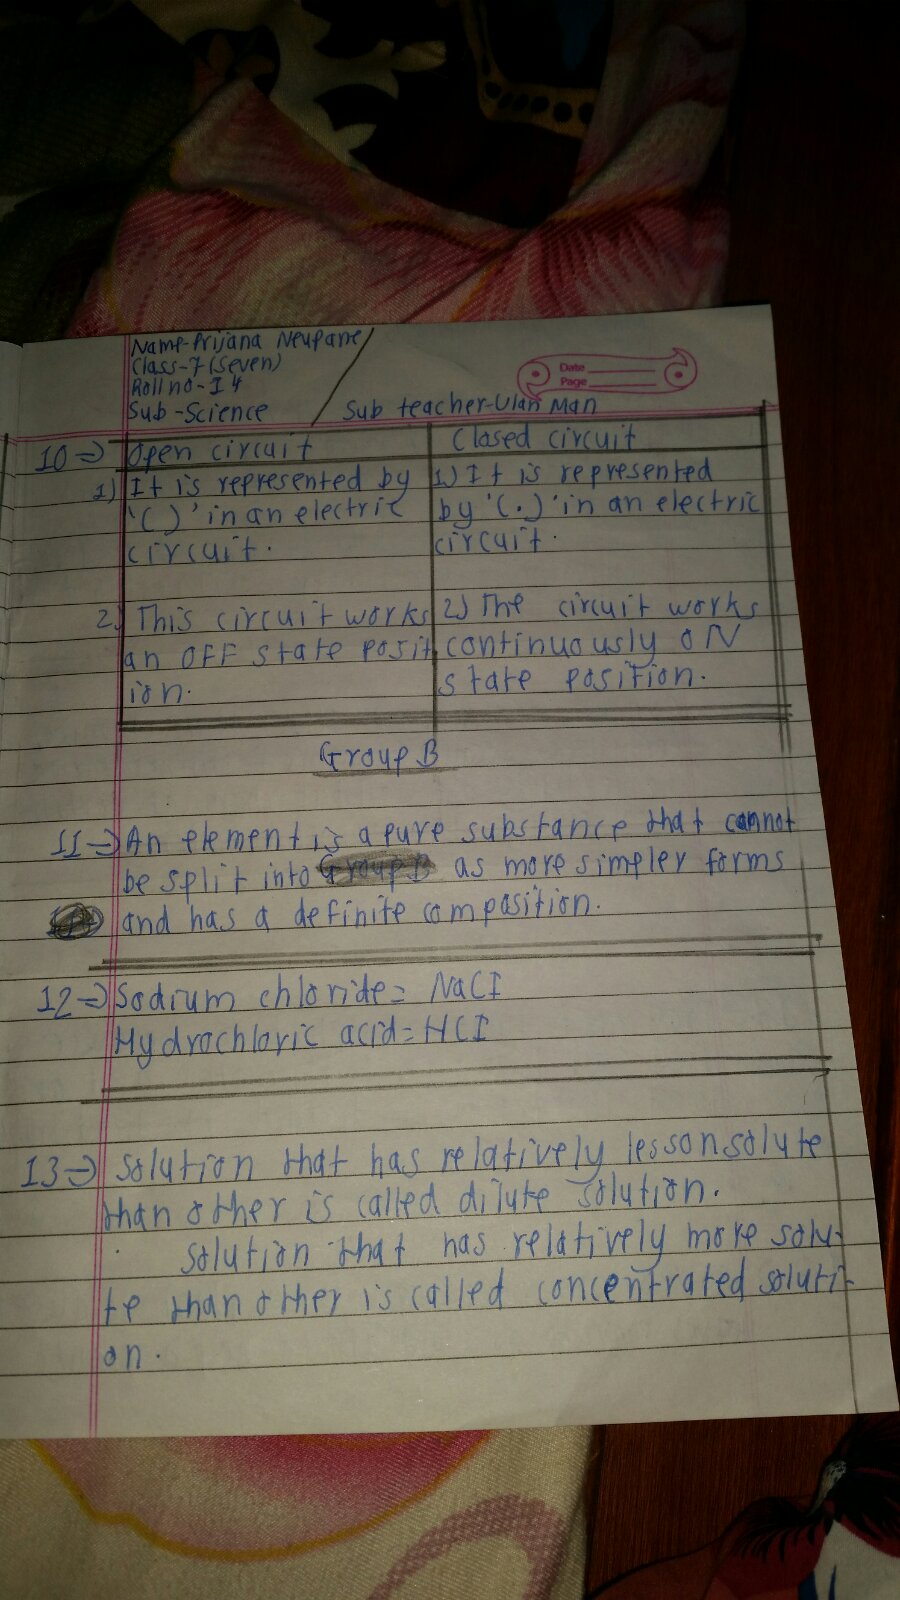 Name-Prijana Neupane
Class-7(Seven)
Roll no-14
Sub-Science
Sub teacher-Ulan Man
Date
Page
10⇒ Open circuit
Closed circuit
1) It is represented by
'( )' in an electric
circuit.
1) It is represented
by '(.)' in an electric
circuit.
2) This circuit works
an OFF state posit
ion.
2) The circuit works
continuously ON
state position.
Group B
11⇒ An element is a pure substance that cannot
be split into Group B as more simpler forms
and has a definite composition.
12⇒ Sodium chloride = NaCI
Hydrochloric acid = HCI
13⇒ solution that has relatively lessonsolute
than other is called dilute solution.
solution that has relatively more solu-
te than other is called concentrated soluti-
on.